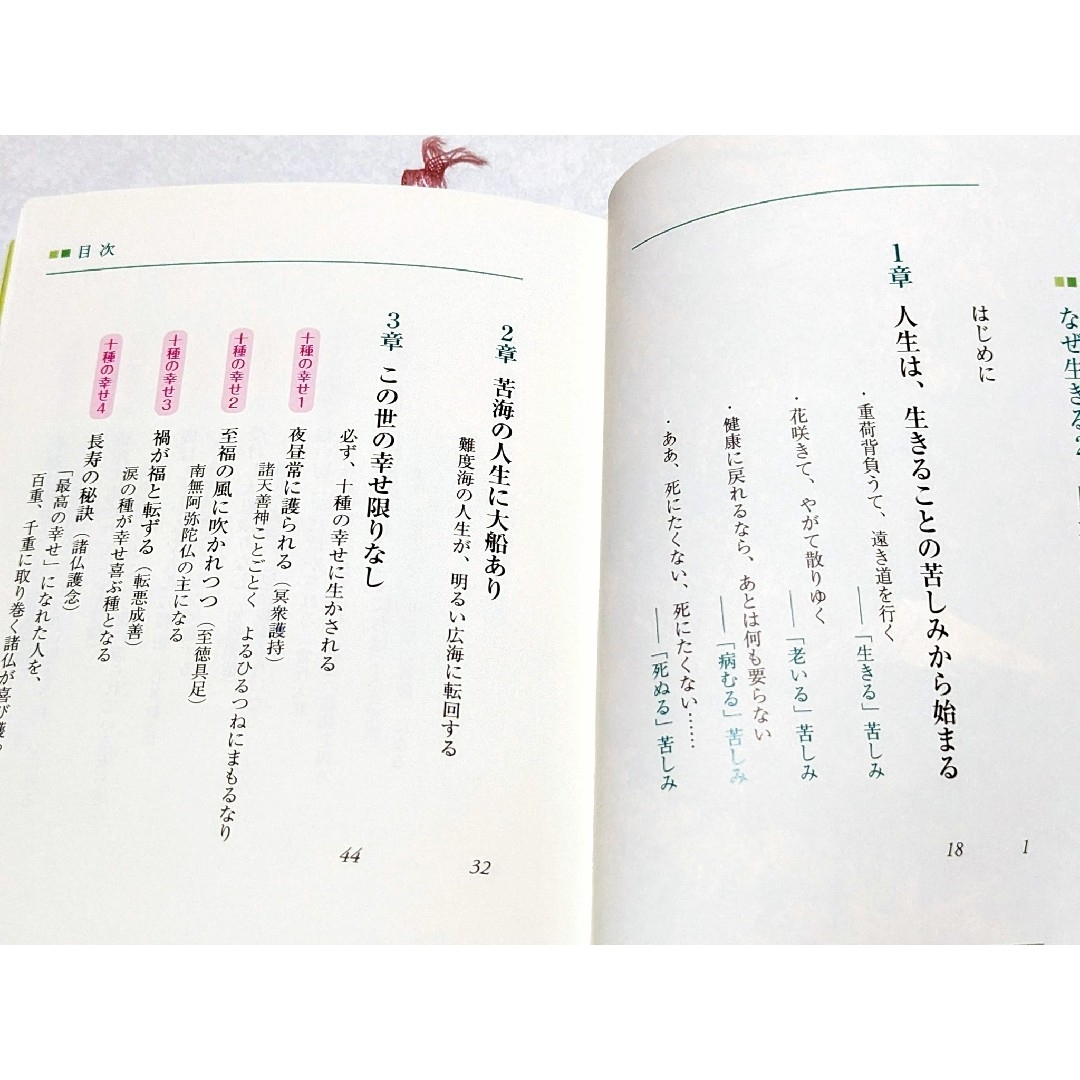 なぜ生きる2
はじめに
1
1章 人生は、生きることの苦しみから始まる
18
・重荷背負うて、遠き道を行く
――「生きる」苦しみ
・花咲きて、やがて散りゆく
――「老いる」苦しみ
・健康に戻れるなら、あとは何も要らない
――「病むる」苦しみ
・ああ、死にたくない、死にたくない……
――「死ぬる」苦しみ
目次
2章 苦海の人生に大船あり
32
難度海の人生が、明るい広海に転回する
3章 この世の幸せ限りなし
44
必ず、十種の幸せに生かされる
十種の幸せ1
夜昼常に護られる（冥衆護持）
諸天善神ことごとく よるひるつねにまもるなり
十種の幸せ2
至福の風に吹かれつつ（至徳具足）
南無阿弥陀仏の主になる
十種の幸せ3
禍が福と転ずる（転悪成善）
涙の種が幸せ喜ぶ種となる
十種の幸せ4
長寿の秘訣（諸仏護念）
「最高の幸せ」になれた人を、
百重、千重に取り巻く諸仏が喜び護